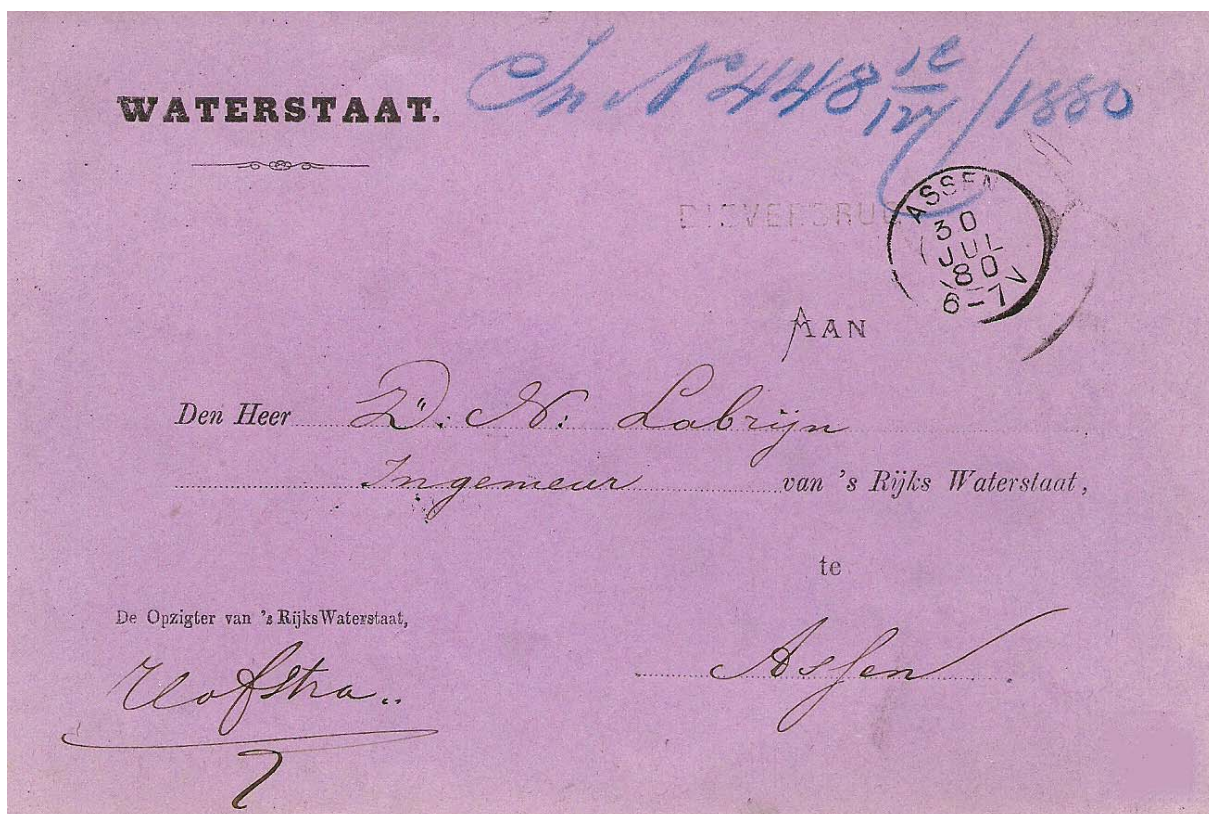 WATERSTAAT.
In No 448 /1880
DIEVERBRUG
ASSEN
30
JUL
80
6-7 V
AAN
Den Heer D. N. Labrijn
Ingenieur van 's Rijks Waterstaat,
te
De Opzigter van 's Rijks Waterstaat,
Assen.
Hofstra